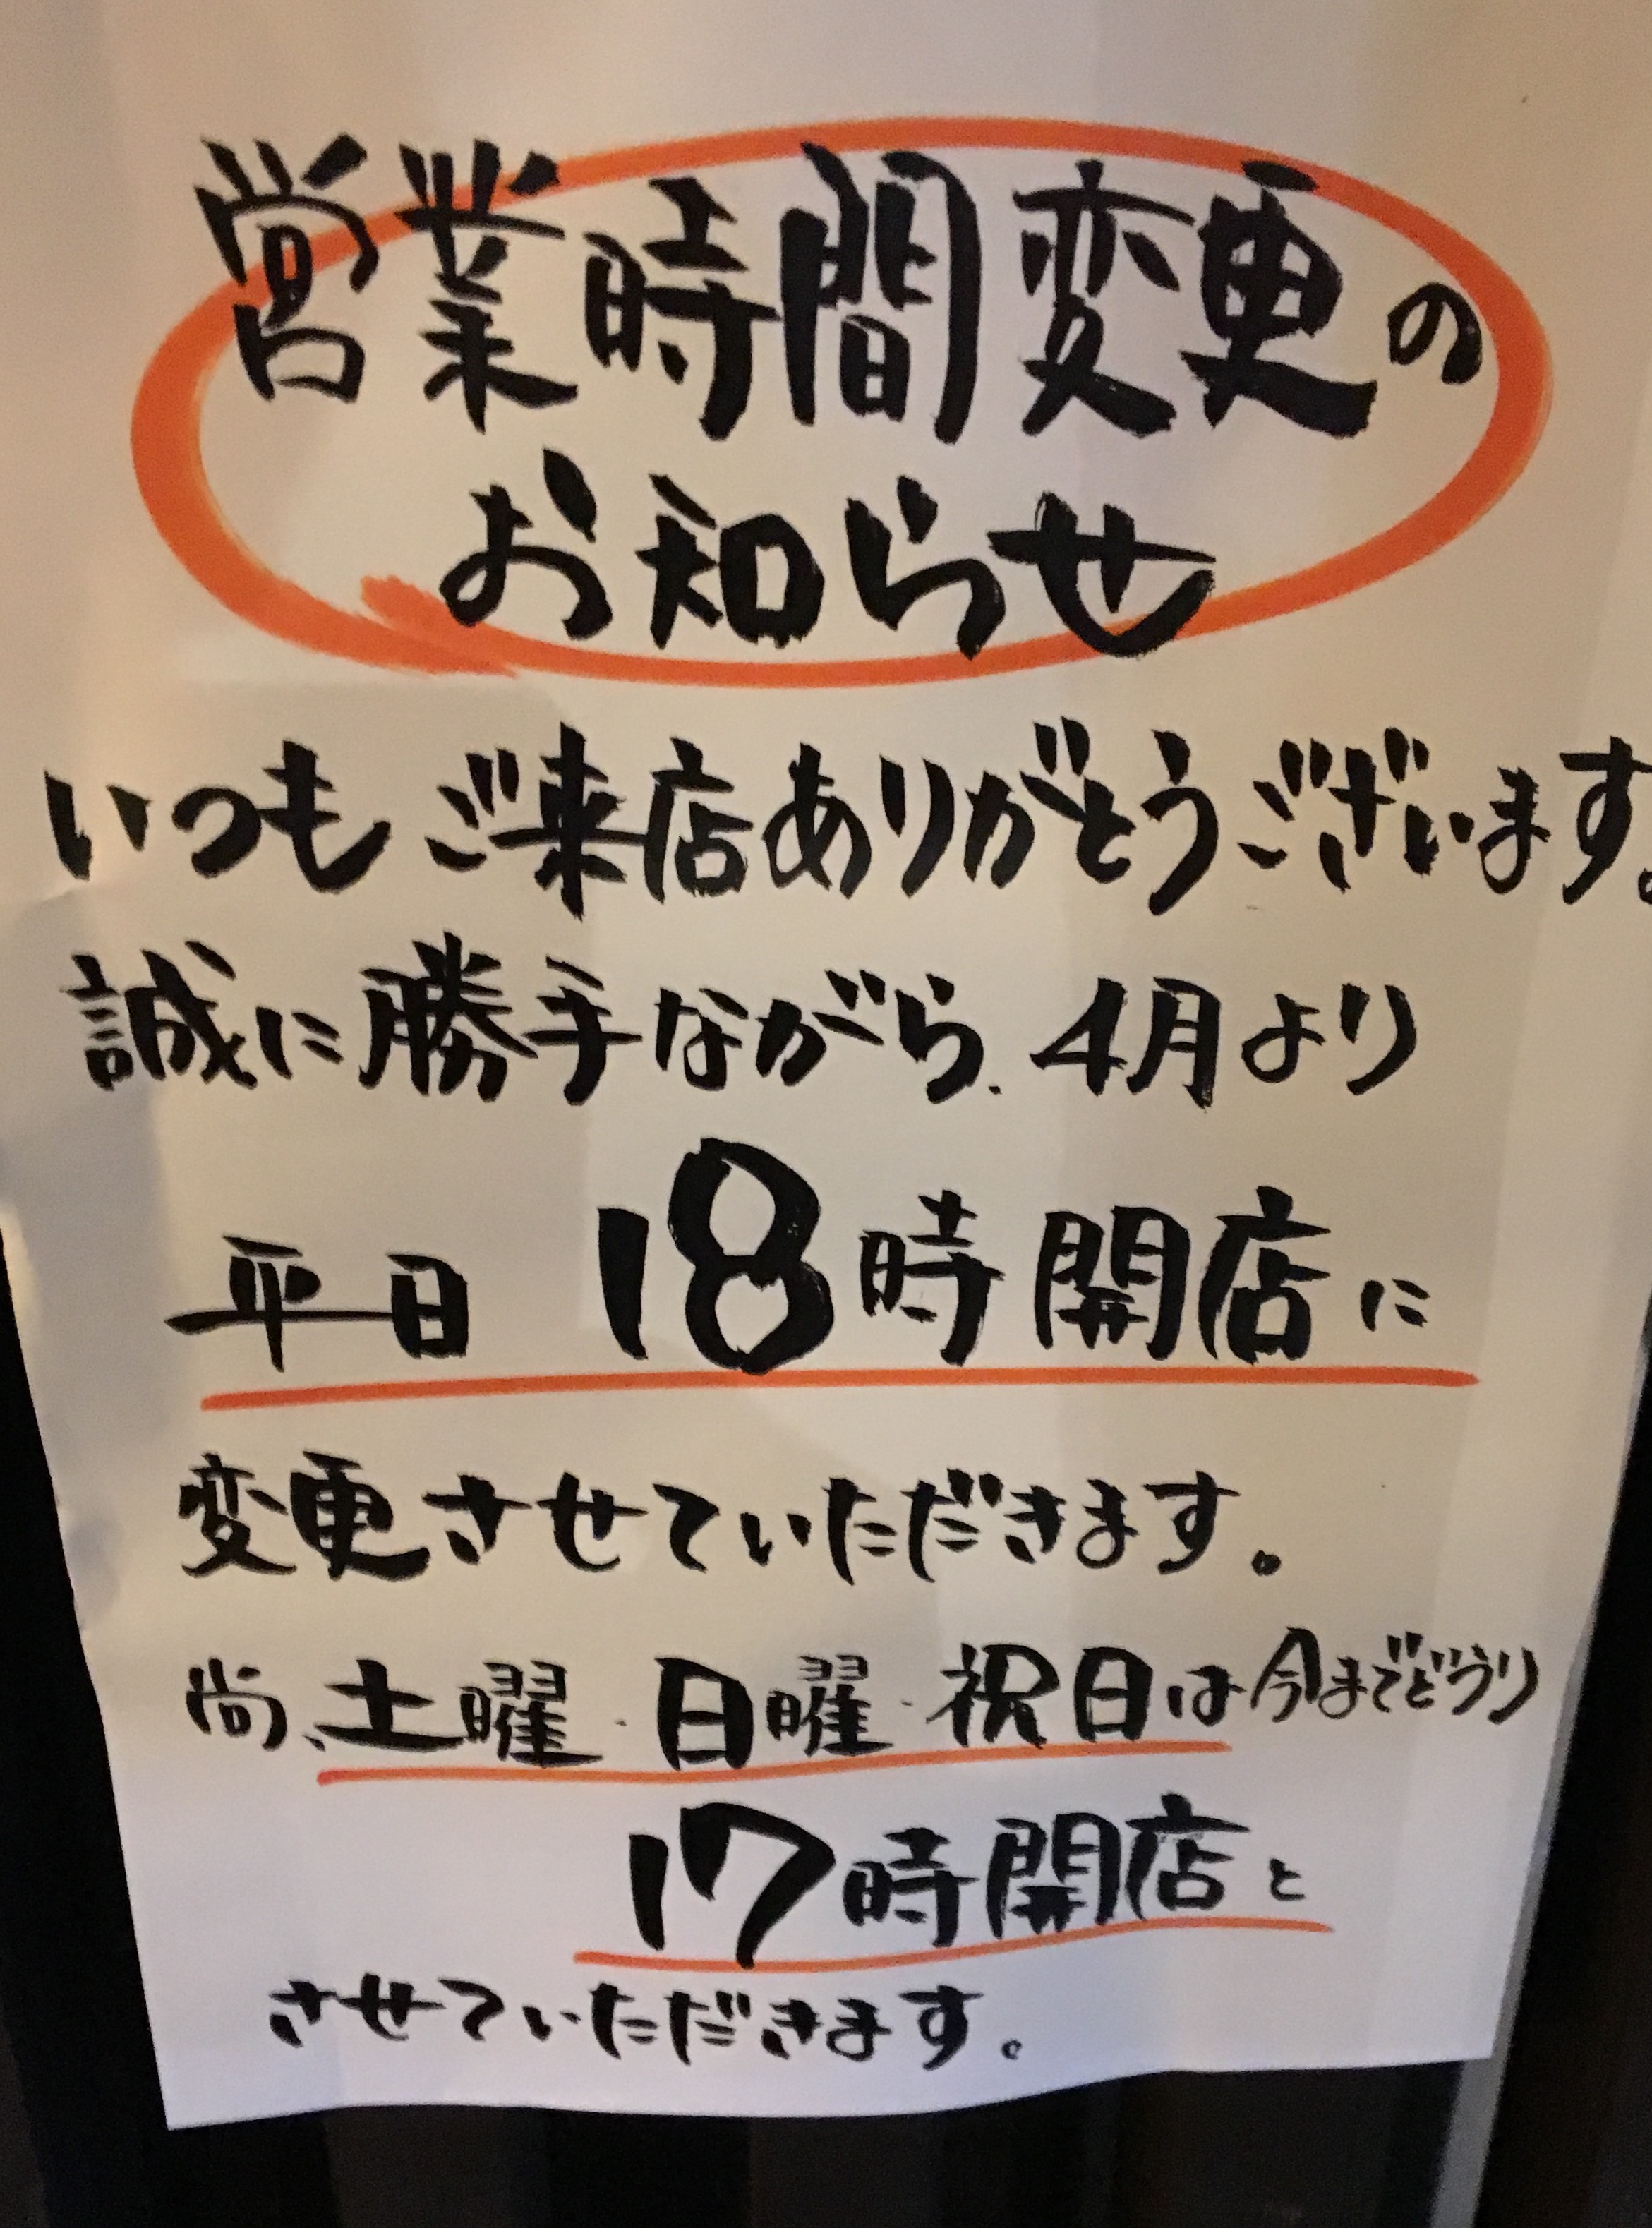 営業時間変更の
お知らせ
いつもご来店ありがとうございます。
誠に勝手ながら、4月より
平日 18時開店に
変更させていただきます。
尚、土曜・日曜・祝日は今までどうり
17時開店と
させていただきます。